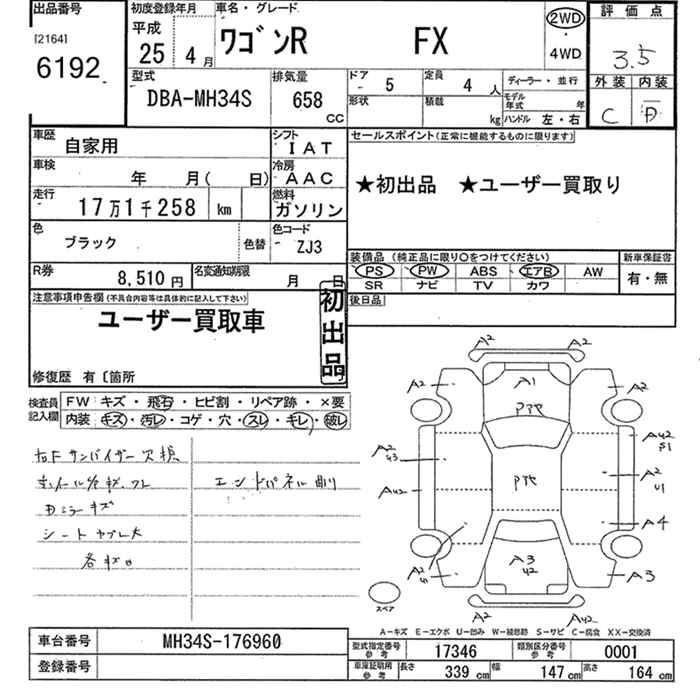 出品番号
[2164]
6192
初度登録年月
平成
25 4月
車名・グレード
ワゴンR FX
2WD
・
4WD
評価点
3.5
外装 内装
C D
型式
DBA-MH34S
排気量
658 CC
ドア 5
定員 4 人
形状
積載 kg
ディーラー・並行
モデル年式 年
ハンドル 左・右
車歴 自家用
シフト IAT
車検 年 月( 日)
冷房 AAC
走行 17万1千258 km
燃料 ガソリン
色 ブラック
色替
色コード ZJ3
R券 8,510円
名変通知期限 月 日
セールスポイント(正常に機能するものに限ります)
★初出品 ★ユーザー買取り
装備品 (純正品に限り○をつけてください)
新車保証書
PS PW ABS エアB AW
SR ナビ TV カワ
有・無
後日品
注意事項申告欄(不具合内容等は具体的に記入して下さい)
ユーザー買取車
初出品
修復歴 有〔箇所
検査員記入欄
FW キズ・飛石・ヒビ割・リペア跡・×要
内装 キズ・汚レ・コゲ・穴・スレ・キレ・破レ
右Fサンバイザー欠損
エンドパネル凹
シートヤブレ大
A2 A2
A2 A1 A2
A2 43
A42 51
A42
A2 U1
A4
A3 42
A2
A3
A2 A42
スペア
A-キズ E-エクボ U-凹み W-補修跡 S-サビ C-腐食 XX-交換済
車台番号 MH34S-176960
登録番号
型式指定番号 参考 17346
類別区分番号 参考 0001
車庫証明用 参考 長さ 339 cm 幅 147 cm 高さ 164 cm